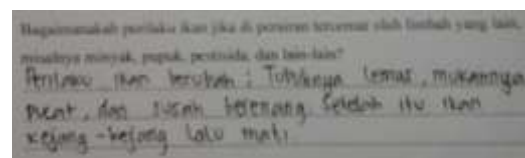 Bagaimanakah perilaku ikan jika di perairan tercemar oleh limbah yang lain,
misalnya minyak, pupuk, pestisida, dan lain-lain?
Perilaku ikan berubah : Tubuhnya lemas, mukannya
pucat, dan susah berenang. Setelah itu ikan
kejang-kejang lalu mati.